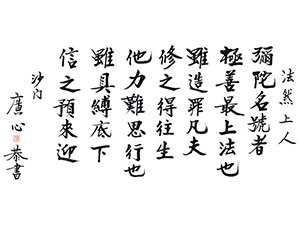 法然上人
彌陀名號者
極善最上法也
雖造罪凡夫
修之得往生
他力難思行也
雖具縛底下
信之預來迎
沙門
廣心
恭書